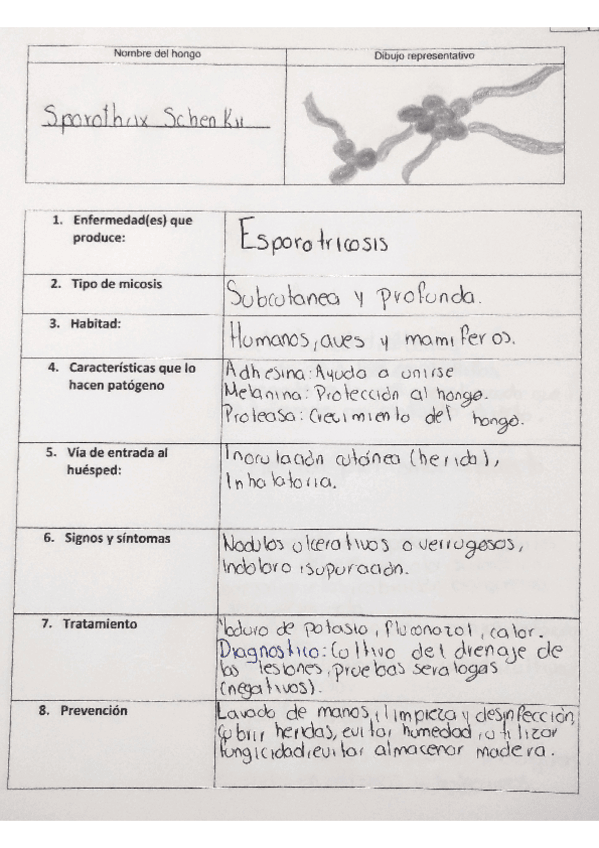 Nombre del hongo
Dibujo representativo
Sporothrix Schenkii
1. Enfermedad(es) que
produce:
Esporotricosis
2. Tipo de micosis
Subcutanea y profunda.
3. Habitad:
Humanos, aves y mamiferos.
4. Características que lo
hacen patógeno
Adhesina: Ayuda a unirse
Melanina: Protección al hongo.
Proteasa: Crecimiento del hongo.
5. Vía de entrada al
huésped:
Inoculación cutánea (herida),
Inhalatoria.
6. Signos y síntomas
Nodulos ulcerativos o verrugosos,
indoloro, supuración.
7. Tratamiento
Yoduro de potasio, fluconazol, calor.
Diagnostico: Cultivo del drenaje de
las lesiones, pruebas serologas
(negativos).
8. Prevención
Lavado de manos, limpieza y desinfección,
cubrir heridas, evitar humedad, utilizar
fungicidad, evitar almacenar madera.